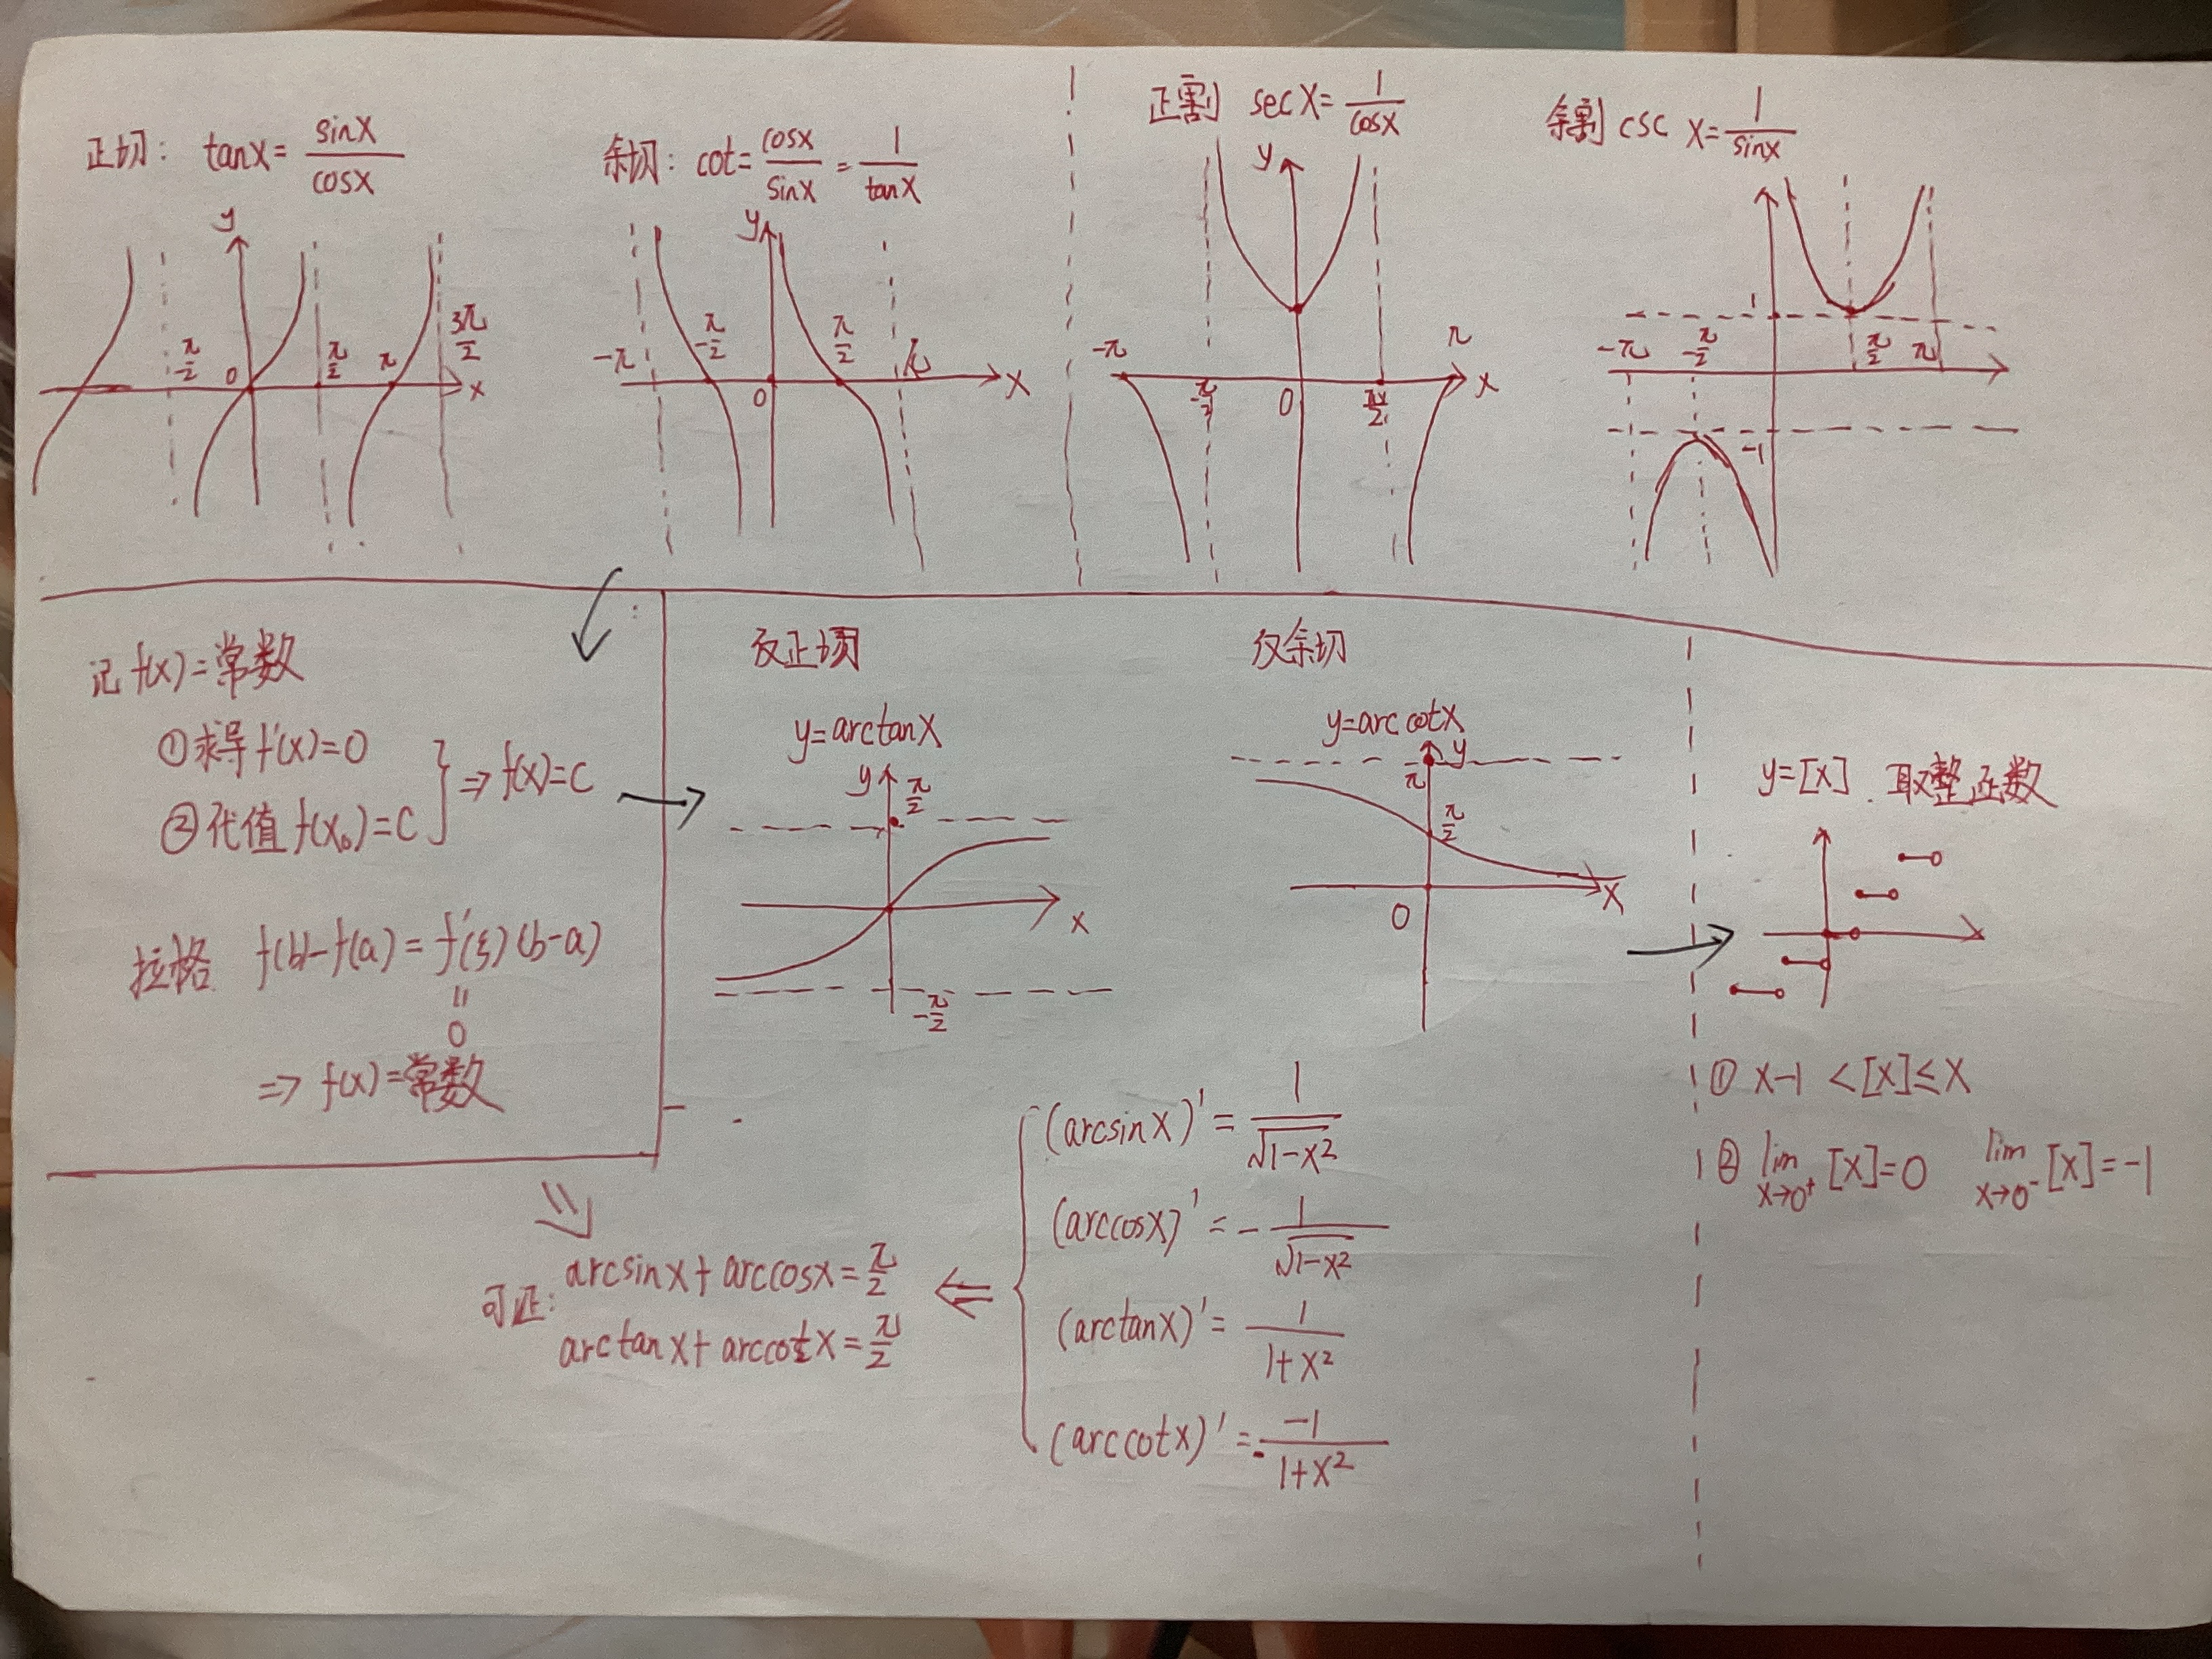 正切: tanx = sinx/cosx
余切: cot = cosx/sinx = 1/tanx
正割 secx = 1/cosx
余割 csc x = 1/sinx
y
-π/2 0 π/2 π 3π/2 x
y
-π -π/2 0 π/2 π x
y
-π -π/2 0 π/2 π x
1
-π -π/2 π/2 π
-1
记 f(x)=常数
①求导 f'(x)=0
②代值 f(x₀)=C
⇒ f(x)=C
拉格 f(b)-f(a) = f'(ξ)(b-a)
=
0
⇒ f(x)=常数
反正切
y=arctanx
y π/2
x
-π/2
反余切
y=arccotx
y
π
π/2
0 x
y=[x] 取整
① x-1 < [x] ≤ x
② lim x→0⁺ [x]=0 lim x→0⁻ [x]=-1
(arcsinx)' = 1/√1-x²
(arccosx)' = -1/√1-x²
(arctanx)' = 1/1+x²
(arccotx)' = -1/1+x²
可证: arcsinx + arccosx = π/2
arctanx + arccotx = π/2